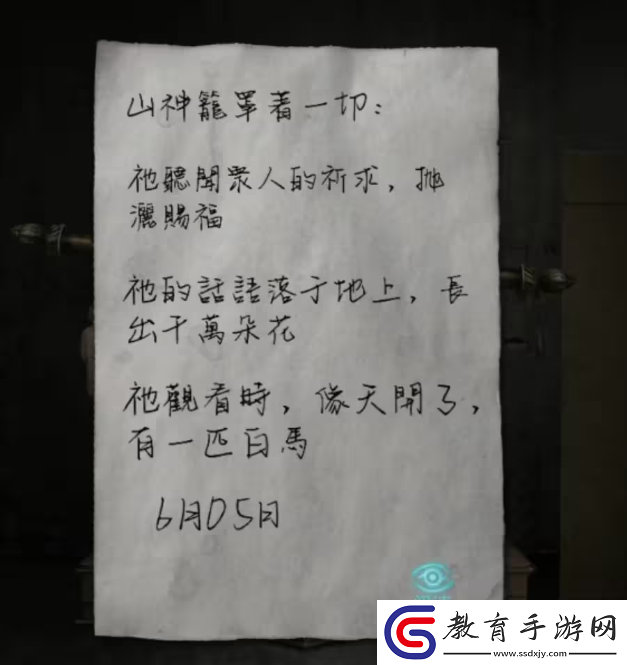 山神籠罩着一切：
祂聽聞眾人的祈求，拋
灑賜福
祂的話語落于地上，長
出千萬朵花
祂觀看時，像天開了，
有一匹白馬
6月05日
教育手游网
www.ssdxjy.com